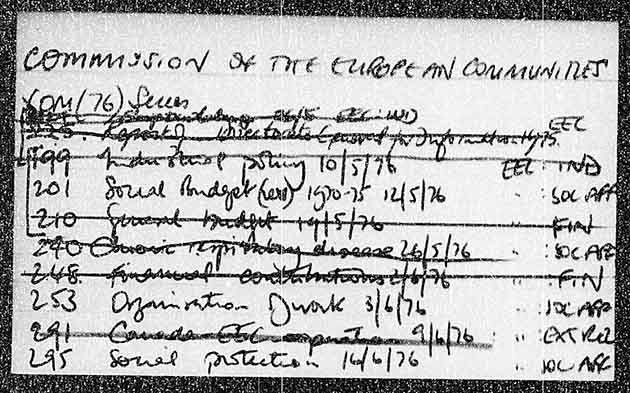 COMMISSION OF THE EUROPEAN COMMUNITIES
COM(76) Series
Report of Directorate General for Information 1975. EEC
199 Industrial policy 10/5/76 EEC: IND
201 Social Budget 1970-75 12/5/76 " : SOC AFF
210 General Budget 19/5/76 " : FIN
240 Chronic respiratory disease 26/5/76 " : SOC AFF
248. Financial contributions 2/6/76 " : FIN
253 Organisation of work 3/6/76 " : SOC AFF
291 Canada EEC cooperation 9/6/76 " : EXT REL
295 Social protection 16/6/76 " : SOC AFF